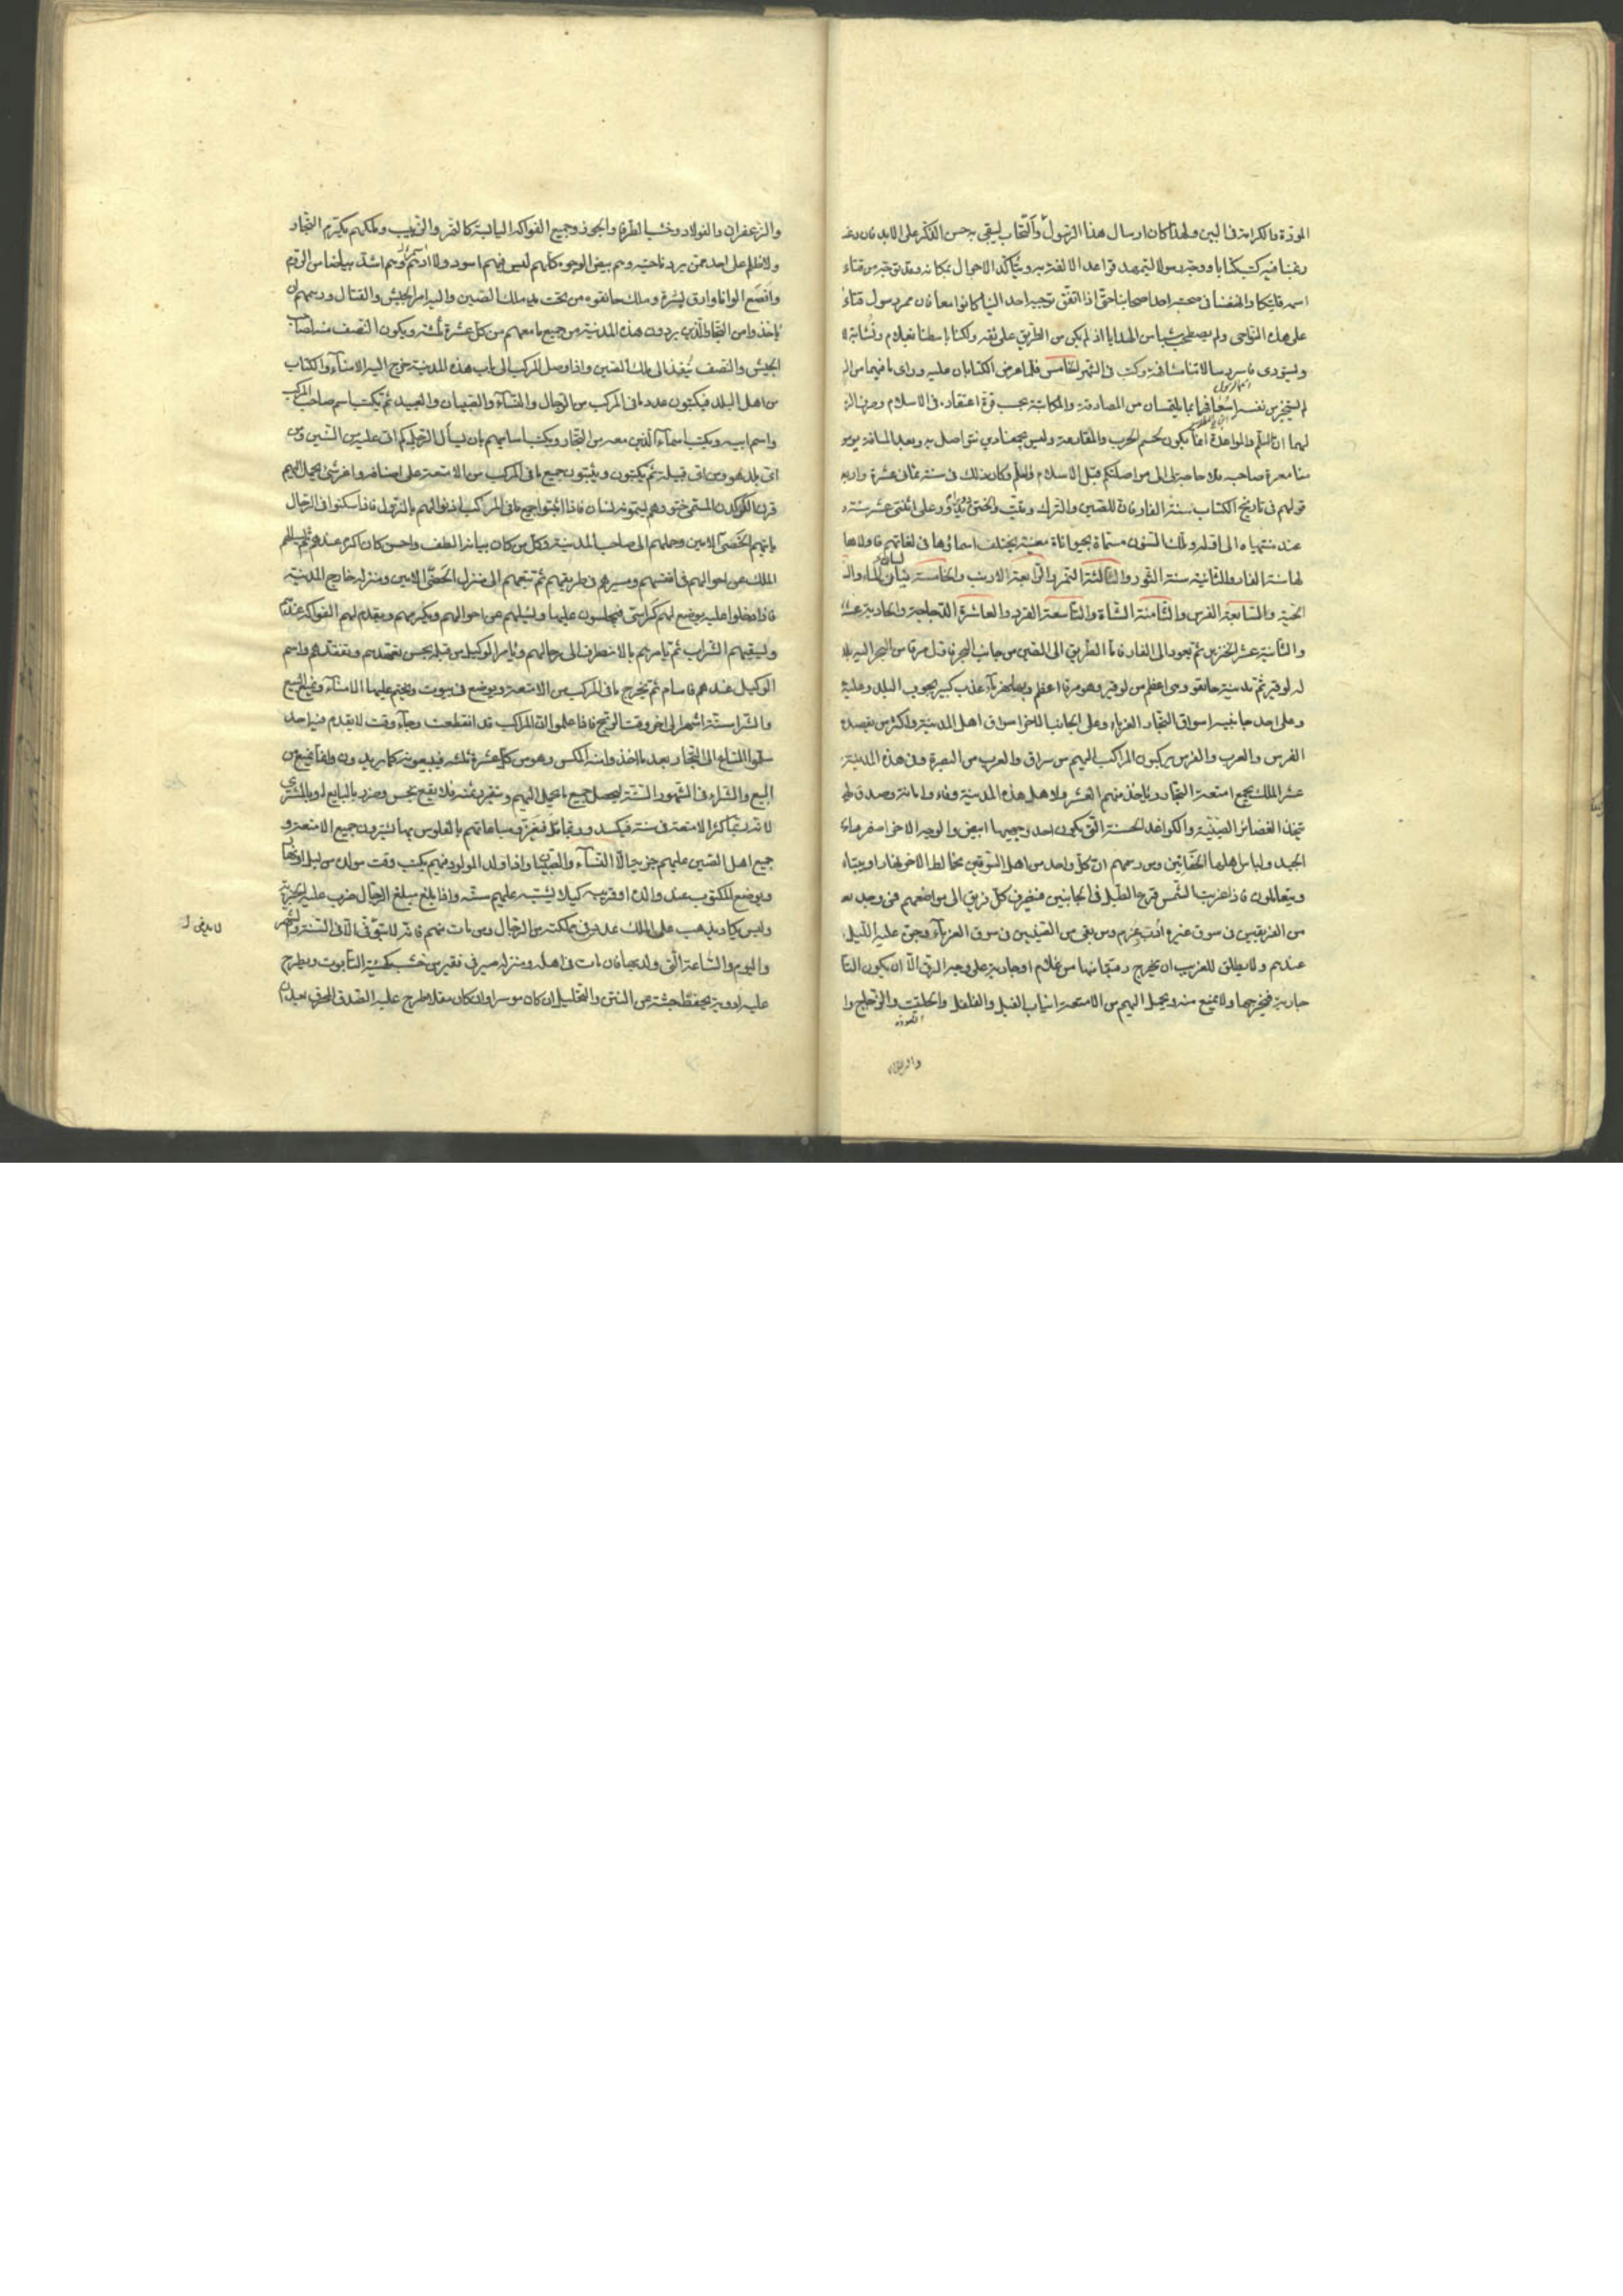 المودة والكرامة فى البين ولهذا كان ارسال هذا الرسول والكتاب ليبقى به حسن الذكر على الابد فان رغب
رغبنا فيه كتب كتابا ووجه رسولا لتتمهد قواعد الالفة به ويتأكد الاحوال بمكانه وقد توجه من قتاء
اسمه قلتنكا وانهضنا فى صحبته احد اصحابنا حتى اذا اتفق توجيه احد الينا كانوا معا فان ممر رسول قتاء
على هذه النواحى ولم يصطحب شيأ من الهدايا اذ لم يكن من الطريق على ثقة ولكنا بسطنا بغلام ونشابة
وليؤدى ما سيرد رسالاتنا مشافهة وكتب فى الشهر الخامس فلما عرض الكتابان عليه وراى ما فيهما من
لم يستجز من نفسه اسعافهما بما يلتمسان من المصادقة والمكاتبة بحسب قوة اعتقاده فى الاسلام وصرف
لهما ان السلم والمواعدة انما يكون لحسم الحرب والمقارعة وليس يجمعنا دين نتواصل به وبعد المسافة يؤمن
منا معرة صاحبه فلا حاجة بى الى مواصلتكم قبل الاسلام والسلم وكان ذلك فى سنة ثمانى عشرة واربع
قولهم فى تاريخ الكتاب سنة الفار فان للصين والترك وتبت والختن ادوارا تدور على اثنتى عشر سنة
عند منتهاه الى اوله وتلك السنون مسماة بحيوانات معينة يختلف اسماؤها فى لغاتهم فاولاها
لها سنة الفار والثانية سنة الثور والثالثة النمر والرابعة الارنب والخامسة
الحية والسابعة الفرس والثامنة الشاة والتاسعة القرد والعاشرة الدجاجة والحادية عشر
والثانية عشر الخنزير ثم يعود الى الفار فاما الطريق الى الصين من جانب البحر فاول مرفا من البحر اليه بلد
له لوقير ثم مدينة خانقو وهى اعظم من لوقير وهو مرفا اعظم وبها نهر ماء عذب كبير يجوب البلد وعليه
وعلى احد جانبيه اسواق التجار الغرباء وعلى الجانب الاخر اسواق اهل المدينة واكثر من يقصده
الفرس والعرب والفرس يركبون المراكب اليهم من سراق والعرب من البصرة وفى هذه المدينة
عشر الملك يجمع امتعة التجار ويأخذ منهم العشر ولاهل هذه المدينة وفاء وامانة وصدق
تتخذ الغضائر الصينية والكواغد الحسنة التى يكون احد وجهيها ابيض والوجه الاخر اصفر
الجيد ولباس اهلها ومن رسمهم ان كل واحد من اهل السوقين يخالط الاخر نهارا ويبتاع
ويتعاملون فاذا غربت الشمس قرع الطبل فى الجانبين فيصرف كل فريق الى مواضعهم فمن وجد بعد
من الفريقين فى سوق غيره ادب وغرم ومن بقى من الصينيين فى سوق الغرباء وجن عليه الليل
عندهم ولا يطلق للغريب ان يخرج رقيقا منها من غلام او جارية على وجه الرق الا ان يكون
جارية فيخرجها ولا يمنع منه ويحمل اليهم من الامتعة انياب الفيل والفلفل والحلتيت والزجاج
والزعفران والفولاد وخشب الطرفا والجوز وجميع الفواكه اليابسة كالتمر والزبيب وملكهم يكرم التجار
ولا ظلم على احد ممن يرد ناحيته وهم بيض الوجوه كلهم ليس فيهم اسود ولا آدم وهم اشد بياضا من الروم
وانصع الوانا وارق بشرة وملك خانقوه من تحت يد ملك الصين واليه امر الجيش والقتال ورسمهم ان
ياخذوا من التجار الذين يردون هذه المدينة من جميع ما معهم من كل عشرة ثلثة ويكون النصف منه لصاحب
الجيش والنصف ينفذ الى ملك الصين واذا وصل المركب الى باب هذه المدينة خرج اليه الامناء والكتاب
من اهل البلد فيكتبون عدد ما فى المركب من الرجال والنساء والصبيان والعبيد ثم يكتب اسم صاحب المركب
واسم ابيه ويكتب اسماء الذين معه من التجار ويكتب اسنانهم بان يسأل الرجل كم اتى عليه من السنين ومن
اى بلد هو ومن اى قبيلة ثم يكتبون ويثبتون جميع ما فى المركب من الامتعة على اصنافه واعز شئ يحمل اليهم
قرن الكركدن المسمى ختو وهم يسمونه لشان فاذا اثبتوا جميع ما فى المركب اذنوا لهم بالنزول فاذا سكنوا فى الرحال
ياتيهم الخصى الامين وحملهم الى صاحب المدينة وكل من كان بيانه الطف واحسن كان اكرم عندهم
الملك عن احوالهم فى انفسهم ومسيرهم فى طريقهم ثم تتبعهم الى منزل الخصى الامين ومنزله خارج المدينة
فاذا دخلوا عليه يوضع لهم كراسى فيجلسون عليها ويسئلهم عن احوالهم ويكرمهم ويقدم لهم الفواكه
ويسقيهم الشراب ثم يامرهم بالانصراف الى رحالهم ويامر الوكيل من قبله بحسن تعهدهم وتفقدهم واسم
الوكيل عندهم فاسام ثم يخرج ما فى المركب من الامتعة ويوضع فى بيوت ويختم عليها الامناء ويمنع البيع
والشرا ستة اشهر الى اخر وقت الريح فاذا علموا ان المراكب قد انقطعت وجاء وقت لا يقدم فيه احد
سلموا المتاع الى التجار بعد ما اخذوا منه المكس وهو من كل عشرة ثلثة فيبيعونه كما يريدون وانما يمنع من
البيع والشراء فى الشهور الستة ليحصل جميع ما يحمل اليهم ويتقرر ثمنه فلا يقع بخس وضرر بالبايع او بالمشترى
لانه ربما كثر الامتعة فى سنة فيكسد وربما قل فيعز ومبايعاتهم بالفلوس بها يشترون جميع الامتعة و
جميع اهل الصين عليهم جزية الا النساء والصبيان واذا ولد المولود فيهم يكتب وقت مولده من ليل او نهار
ويوضع المكتوب عند والده او قريبه كيلا يشتبه عليهم سنه واذا بلغ مبلغ الرجال ضرب عليه الجزية
وليس يكاد يذهب على الملك عدد من فى مملكته من الرجال ومن مات منهم فانه لا يدفن الا فى السنة والشهر
واليوم والساعة التى ولد بها فان مات فى اهله ومنزله صير فى نقير من خشب كهيئة التابوت ويطرح
عليه ادوية يحفظ جثته من النتن والتحليل ان كان موسرا وان كان مقلا طرح عليه الصدف المحرق
لا يدفن